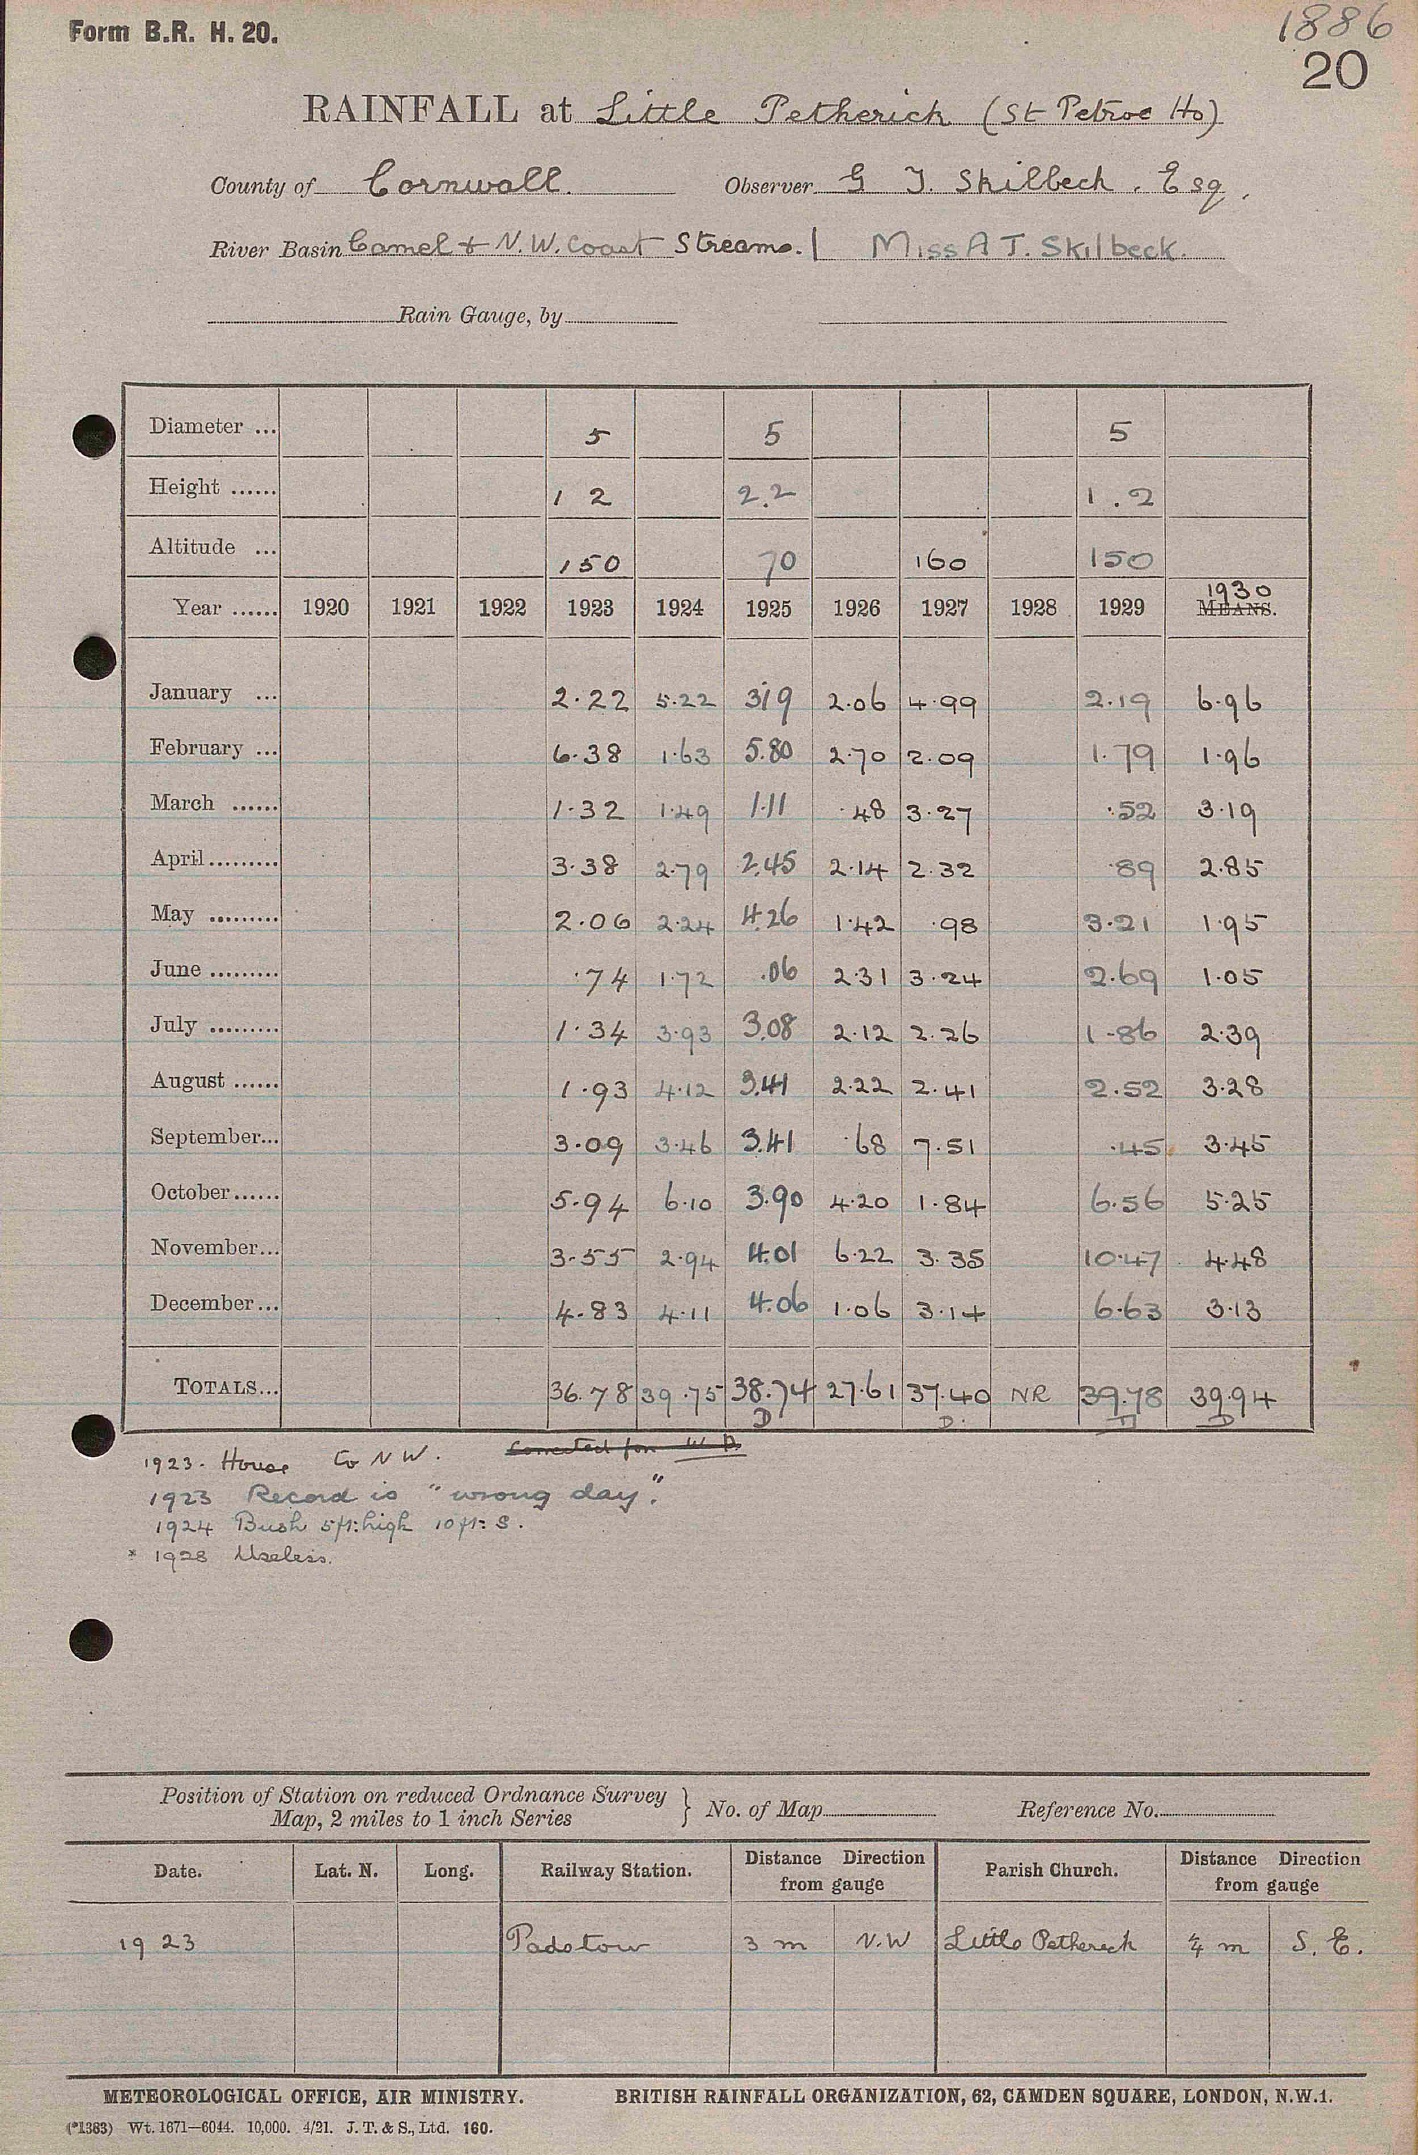 Form B.R. H. 20.
1886
20
RAINFALL at Little Petherick (St Petroc Ho)
County of Cornwall. Observer G J. Skilbeck, Esq.
River Basin Camel & N.W. Coast Streams. | Miss A T. Skilbeck.
Rain Gauge, by
Diameter ... 5 5 5
Height ...... 1 2 2.2 1.2
Altitude ... 150 70 160 150
1930
Year ...... 1920 1921 1922 1923 1924 1925 1926 1927 1928 1929 MEANS.
January ... 2.22 5.22 3.19 2.06 4.99 2.19 6.96
February ... 6.38 1.63 5.80 2.70 2.09 1.79 1.96
March ...... 1.32 1.49 1.11 .48 3.27 .52 3.19
April ......... 3.38 2.79 2.45 2.14 2.32 .89 2.85
May ......... 2.06 2.24 4.26 1.42 .98 3.21 1.95
June ......... .74 1.72 .06 2.31 3.24 2.69 1.05
July ......... 1.34 3.93 3.08 2.12 2.26 1.86 2.39
August ...... 1.93 4.12 3.41 2.22 2.41 2.52 3.28
September... 3.09 3.46 3.41 .68 7.51 .45 3.45
October...... 5.94 6.10 3.90 4.20 1.84 6.56 5.25
November... 3.55 2.94 4.01 6.22 3.35 10.47 4.48
December... 4.83 4.11 4.06 1.06 3.14 6.63 3.13
TOTALS... 36.78 39.75 38.74 27.61 37.40 NR 39.78 39.94
D D. D
1923. House to NW. Corrected for W D.
1923 Record is "wrong day".
1924 Bush 5ft: high 10ft: S.
* 1928 Useless.
Position of Station on reduced Ordnance Survey
Map, 2 miles to 1 inch Series } No. of Map Reference No.
Date. Lat. N. Long. Railway Station. Distance Direction from gauge Parish Church. Distance Direction from gauge
1923 Padstow 3 m N.W Little Petherick ¼ m S. E.
METEOROLOGICAL OFFICE, AIR MINISTRY. BRITISH RAINFALL ORGANIZATION, 62, CAMDEN SQUARE, LONDON, N.W.1.
(*1383) Wt. 1671—6044. 10,000. 4/21. J. T. & S., Ltd. 160.